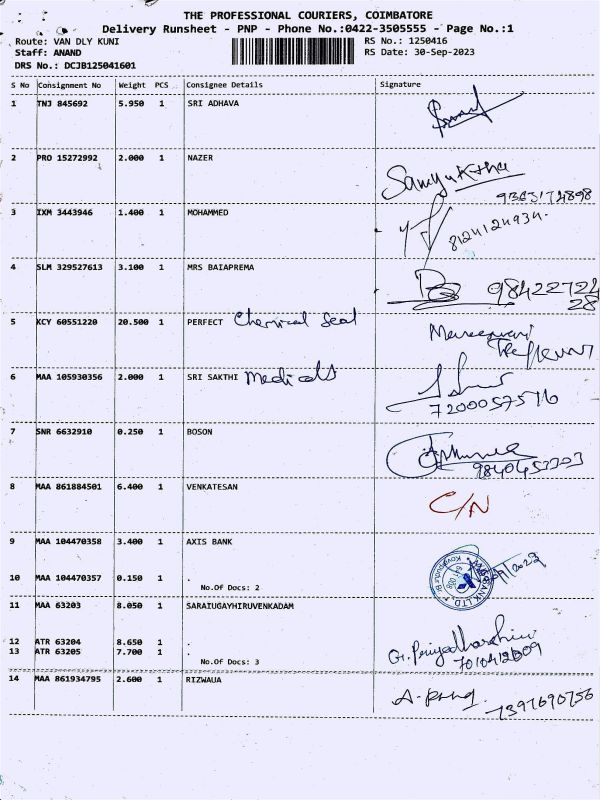 THE PROFESSIONAL COURIERS, COIMBATORE
Delivery Runsheet - PNP - Phone No.:0422-3505555 - Page No.:1
Route: VAN DLY KUNI RS No.: 1250416
Staff: ANAND RS Date: 30-Sep-2023
DRS No.: DCJB125041601
S No Consignment No Weight PCS Consignee Details Signature
1 TNJ 845692 5.950 1 SRI ADHAVA
2 PRO 15272992 2.000 1 NAZER
Samyuktha
3 IXM 3443946 1.400 1 MOHAMMED
8124124934.
4 SLM 329527613 3.100 1 MRS BAIAPREMA
98422724
28
5 KCY 60551220 20.500 1 PERFECT Chemical Seal
6 MAA 105930356 2.000 1 SRI SAKTHI Medicals
7200057516
7 SNR 6632910 0.250 1 BOSON
8 MAA 861884501 6.400 1 VENKATESAN C/N
9 MAA 104470358 3.400 1 AXIS BANK
10 MAA 104470357 0.150 1 .
No.Of Docs: 2
BANK LTD.
11 MAA 63203 8.050 1 SARAIUGAYHIRUVENKADAM
12 ATR 63204 8.650 1 .
13 ATR 63205 7.700 1 .
G. Priyadharshini
7010412009
No.Of Docs: 3
14 MAA 861934795 2.600 1 RIZWAUA
7397690756